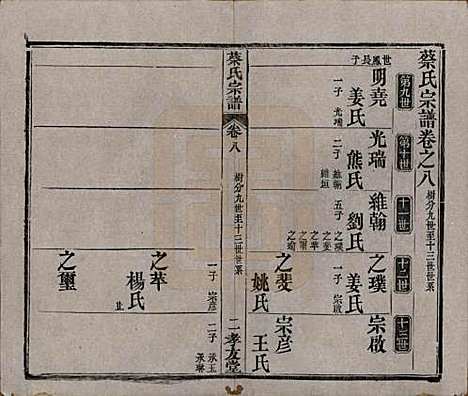 蔡氏宗譜卷之八 樹分九世至十三世世系
第九世
第十世
十一世
十二世
十三世
世鳳長子
明堯
姜氏
一子 光瑞
光瑞
熊氏
二子 維翰 維垣
維翰
劉氏
五子 之璞 之斐 之苹 之璽
之璞
姜氏
一子 宗啟
宗啟
之斐
姚氏
一子 宗彥
宗彥
王氏
二子 承玉 承琳
蔡氏宗譜
卷八
樹分九世至十三世世系
二 孝友堂
之苹
楊氏
之璽